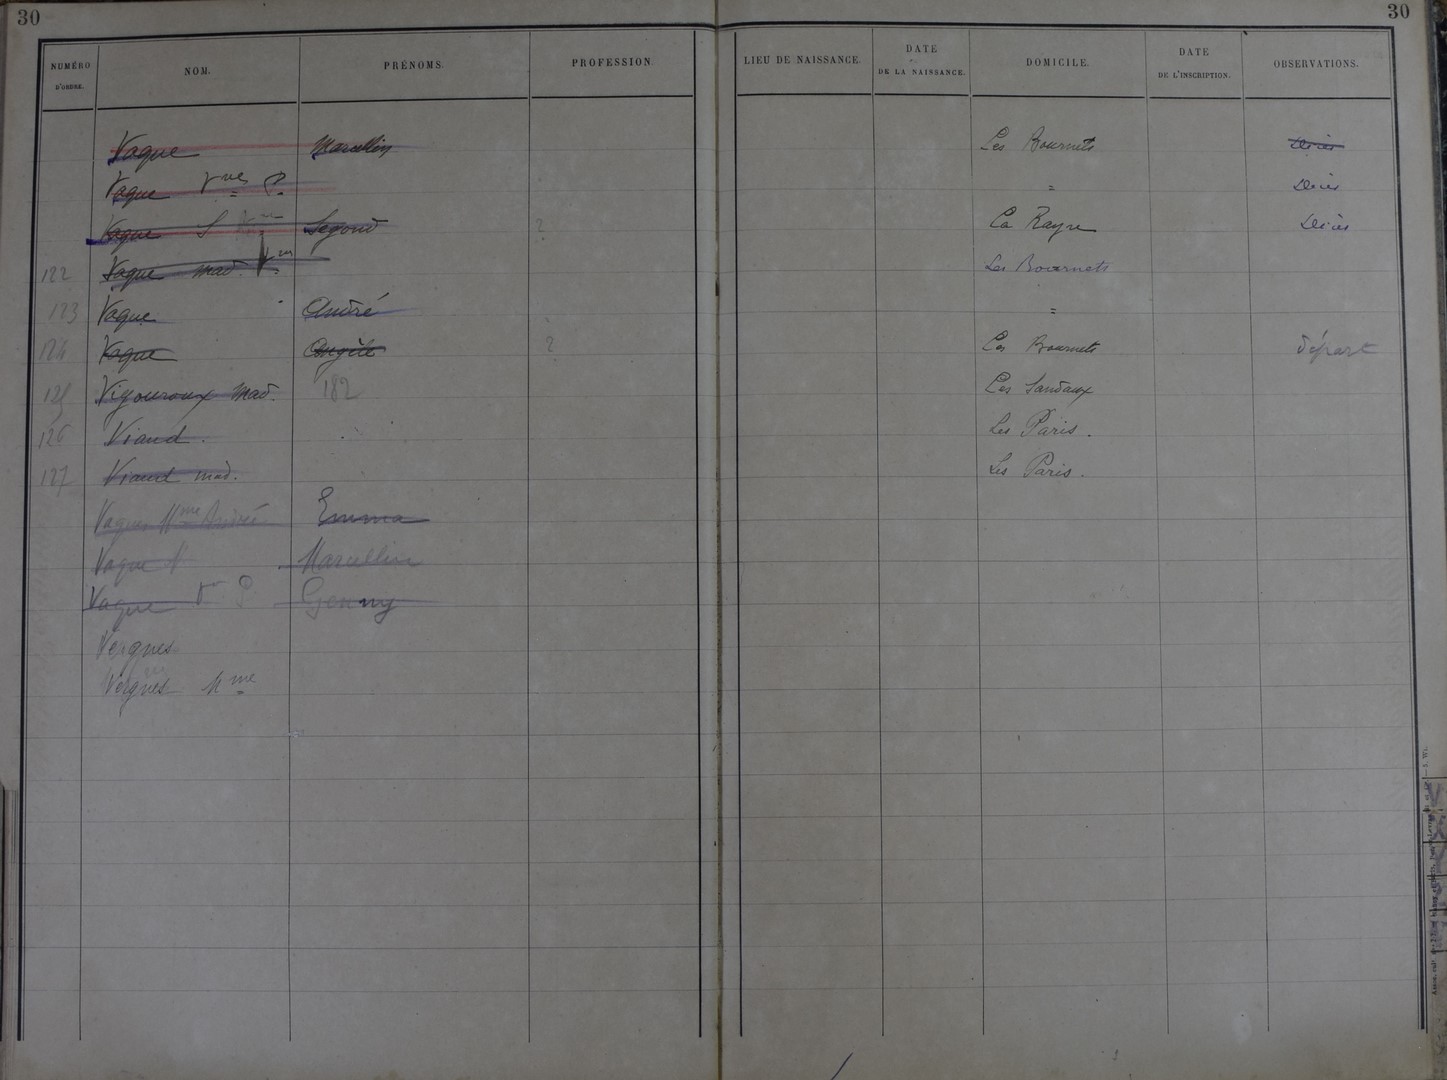 30 30
NUMÉRO D'ORDRE. NOM. PRÉNOMS. PROFESSION. LIEU DE NAISSANCE. DATE DE LA NAISSANCE. DOMICILE. DATE DE L'INSCRIPTION. OBSERVATIONS.
Vaque Marcellin Les Bournets Décès
Vaque Vve P. " Décès
Vaque S Segond ? La Rayre Décès
122 Vaque mad. Vve Les Bournets
123 Vaque André "
124 Vaque Angèle ? Les Bournets Départ
125 Vigouroux Mad. 182 Les Sandaux
126 Viaud. Les Paris.
127 Viaud mad. Les Paris.
Vaque Mme André Emma
Vaque Marcellin
Vaque Vve P Genny
Vergnes
Vergnes Mme